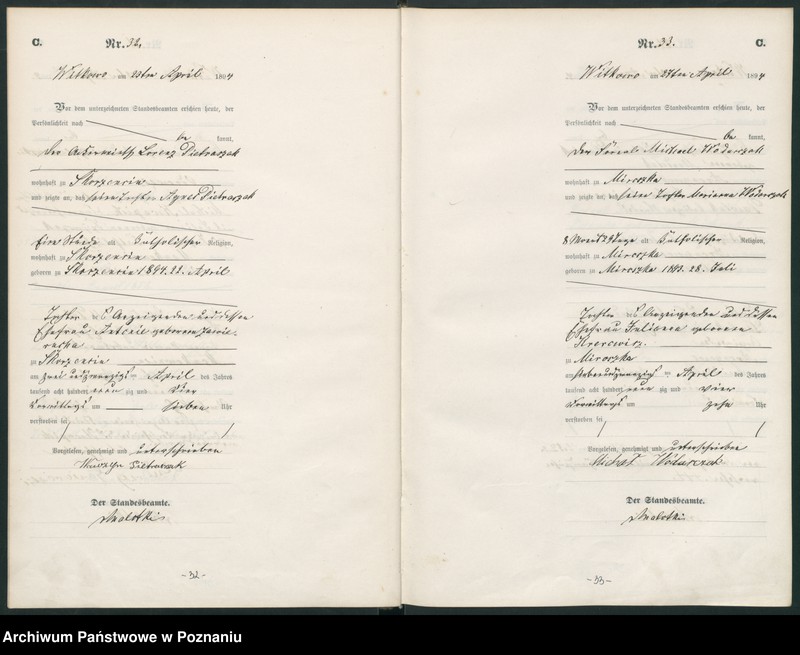 C. Nr. 32.
Witkowo am 23ten April 1894
Vor dem unterzeichneten Standesbeamten erschien heute, der
Persönlichkeit nach
be kannt,
der Ackerwirth Lorenz Pietraszak
wohnhaft zu Skorzencin
und zeigte an, daß seine Tochter Agnes Pietraszak
Eine Stunde alt Katholischer Religion,
wohnhaft zu Skorzencin
geboren zu Skorzencin 1894. 22. April
Tochter des Anzeigenden und dessen
Ehefrau geborenen
zu Skorzencin
am zwei und zwanzigsten April des Jahres
tausend acht hundert neun zig und vier
Vormittags um sieben Uhr
verstorben sei
Vorgelesen, genehmigt und unterschrieben
Wawrzyn Pietraszak
Der Standesbeamte.
-32-
Nr. 33. C.
Witkowo am 27ten April 1894
Vor dem unterzeichneten Standesbeamten erschien heute, der
Persönlichkeit nach
be kannt,
der Michael Wodarczak
wohnhaft zu Miroszka
und zeigte an, daß seine Tochter Marianna Wodarczak
8 Monat 29 Tage alt Katholischer Religion,
wohnhaft zu Miroszka
geboren zu Miroszka 1893. 28. Juli
Tochter des Anzeigenden und dessen
Ehefrau geborenen
zu Miroszka
am siebenundzwanzigsten April des Jahres
tausend acht hundert neun zig und vier
Vormittags um zehn Uhr
verstorben sei
Vorgelesen, genehmigt und unterschrieben
Michał Wodarczak
Der Standesbeamte.
-33-
Archiwum Państwowe w Poznaniu